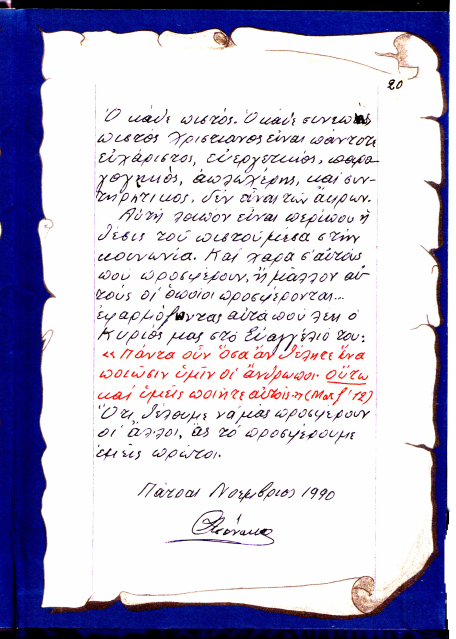 20
Ὁ κάθε πιστός. Ὁ κάθε συνεπὴς
πιστὸς Χριστιανὸς εἶναι πάντοτε
εὐχάριστος, εὐεργετικὸς, παρα-
γωγικὸς, ἁπλοχέρης, καὶ συν-
τηρητικὸς, δὲν εἶναι τῶν ἄκρων.
Αὐτὴ λοιπὸν εἶναι περίπου ἡ
θέσις τοῦ πιστοῦ μέσα στὴν
κοινωνία. Καὶ χαρὰ σ' αὐτοὺς
ποὺ προσφέρουν, ἢ μᾶλλον αὐ-
τοὺς οἱ ὁποῖοι προσφέρονται...
ἐφαρμόζωντας αὐτὰ ποὺ λέει ὁ
Κύριός μας στὸ Εὐαγγέλιό του:
«Πάντα οὖν ὅσα ἂν θέλητε ἵνα
ποιῶσιν ὑμῖν οἱ ἄνθρωποι οὕτω
καὶ ὑμεῖς ποιῆτε αὐτοῖς» (Ματ ζ' 12)
Ὅτι θέλουμε νὰ μᾶς προσφέρουν
οἱ ἄλλοι, ἂς τὸ προσφέρουμε
ἐμεῖς πρῶτοι.
Πάτραι Νοέμβριος 1990